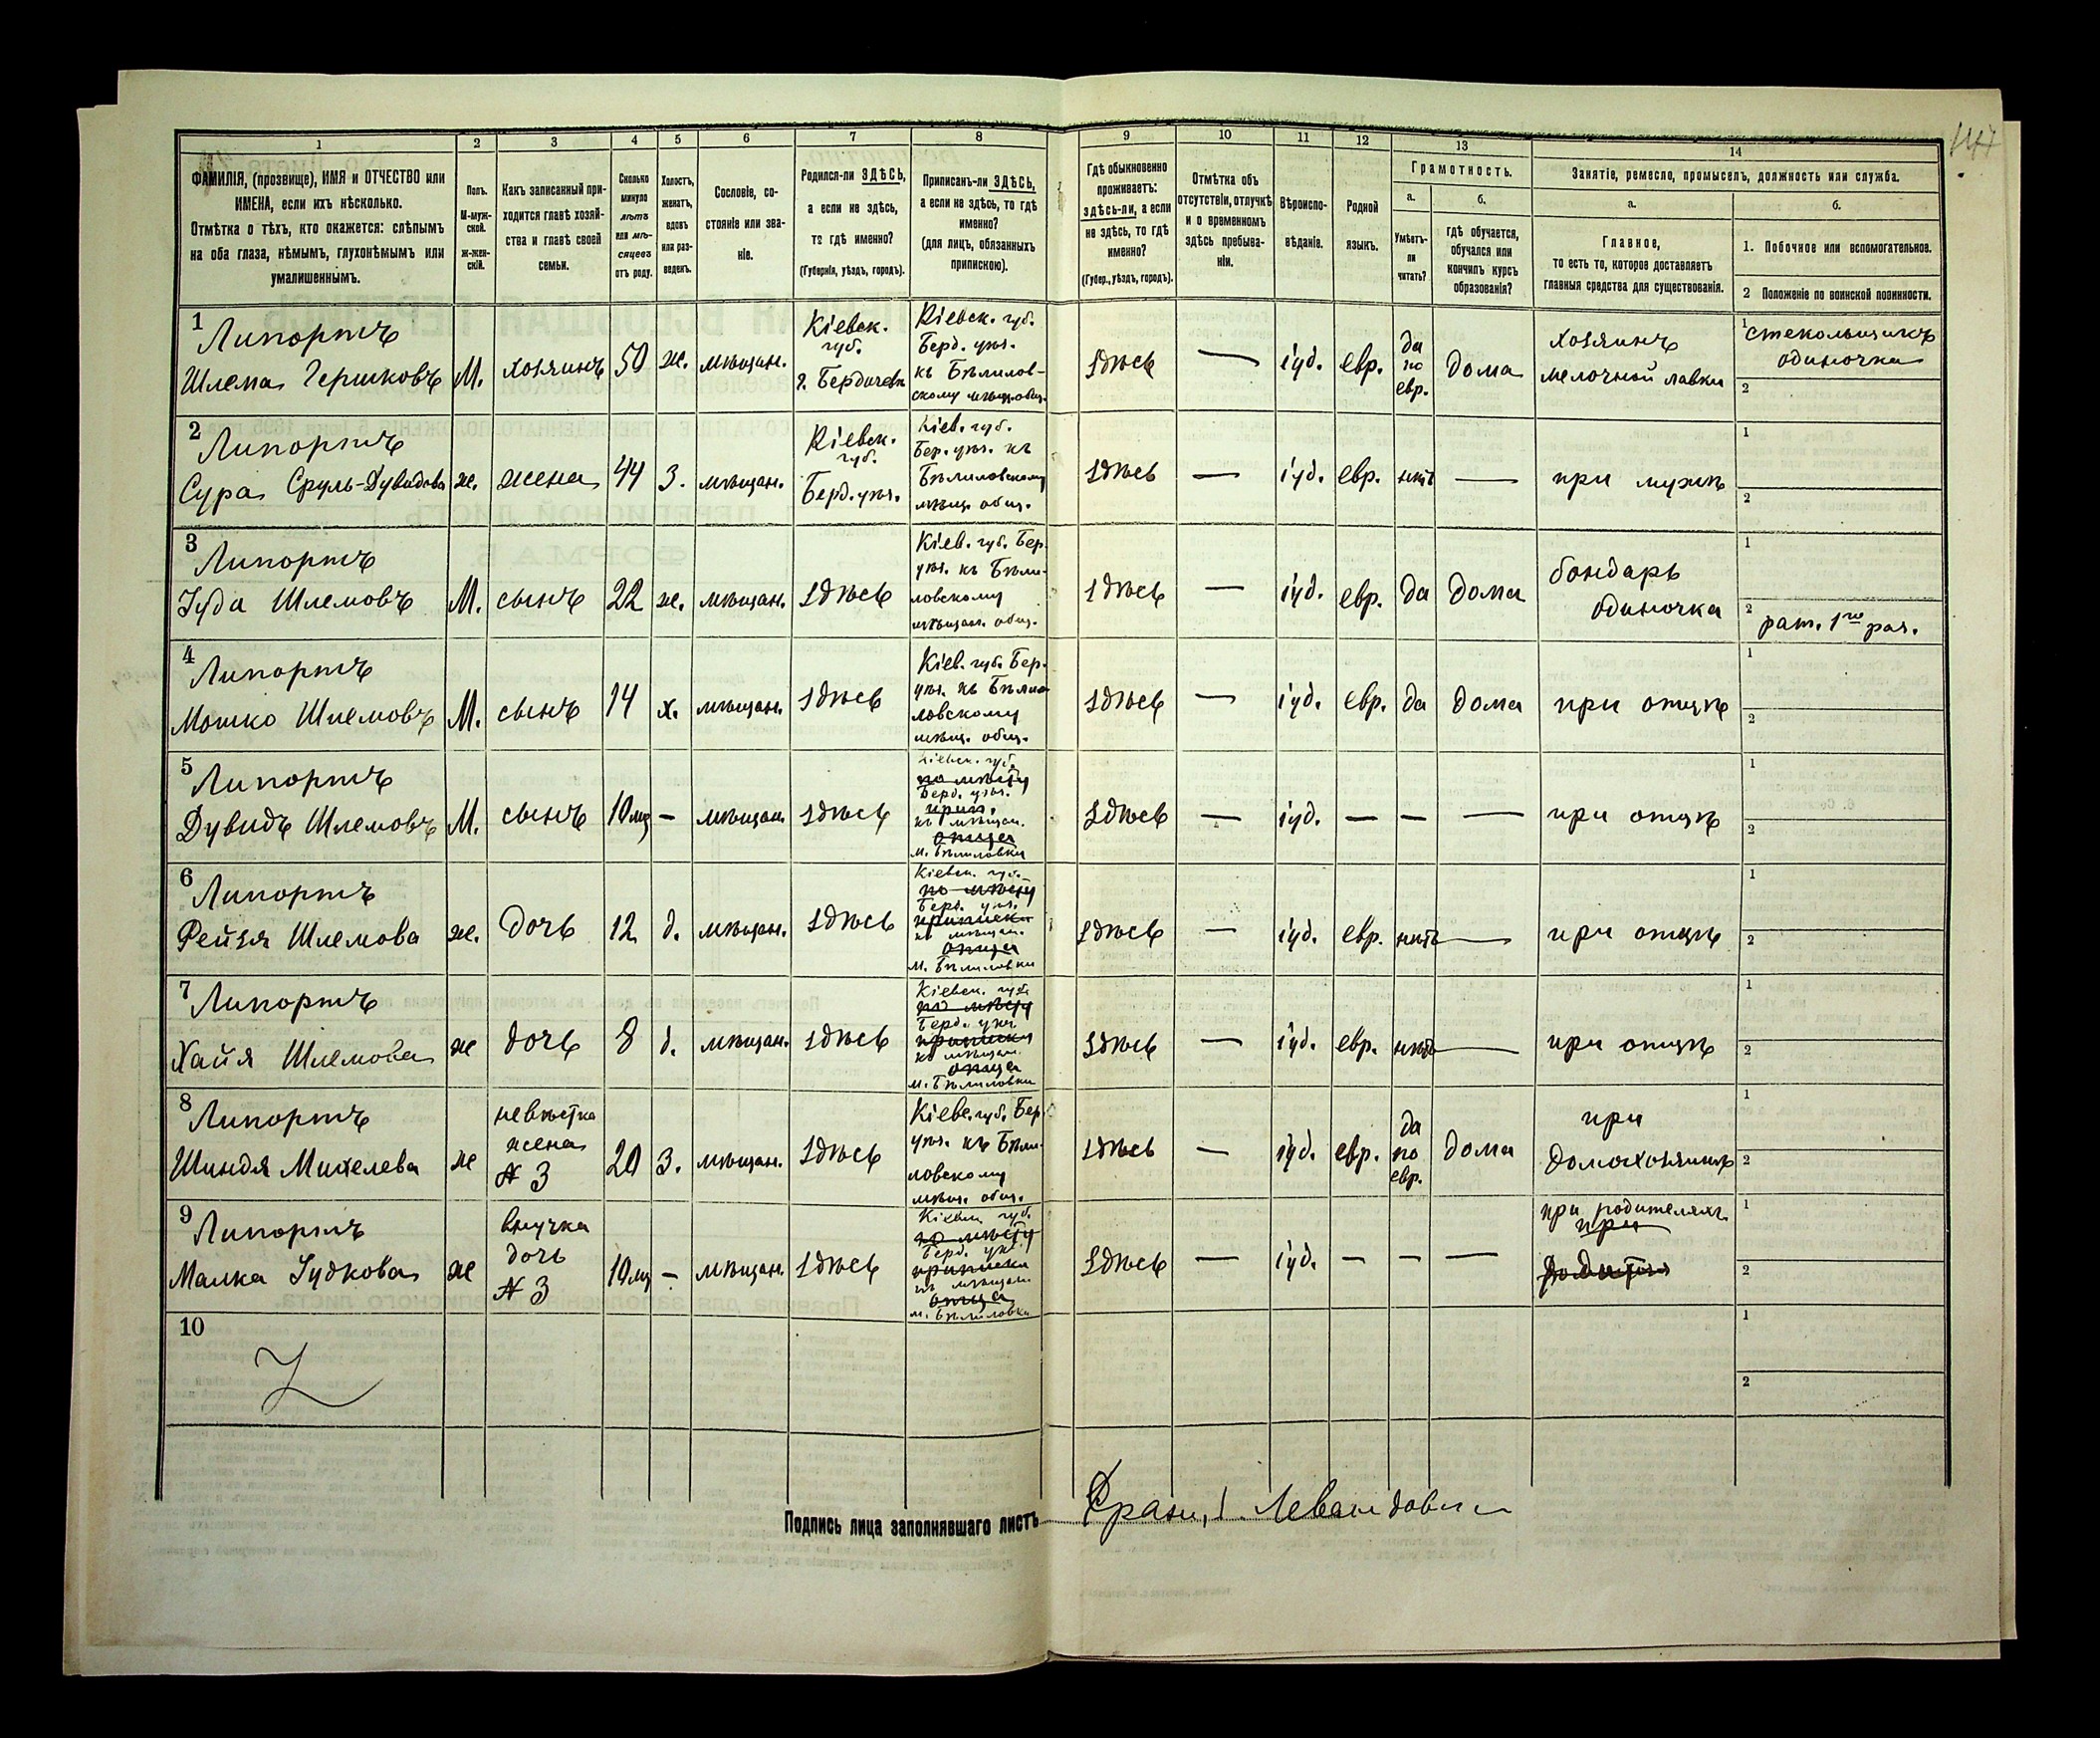 147
1
2
3
4
5
6
7
8
9
10
11
12
13
14
ФАМИЛІЯ, (прозвище), ИМЯ и ОТЧЕСТВО или
ИМЕНА, если ихъ нѣсколько.
Отмѣтка о тѣхъ, кто окажется: слѣпымъ
на оба глаза, нѣмымъ, глухонѣмымъ или
умалишеннымъ.
Полъ.
М-муж-
ской.
ж-жен-
скій.
Какъ записанный при-
ходится главѣ хозяй-
ства и главѣ своей
семьи.
Сколько
минуло
лѣтъ
или мѣ-
сяцевъ
отъ роду.
Холостъ,
женатъ,
вдовъ
или раз-
веденъ.
Сословіе, со-
стояніе или зва-
ніе.
Родился-ли ЗДѢСЬ,
а если не здѣсь,
то гдѣ именно?
(Губернія, уѣздъ, городъ).
Приписанъ-ли ЗДѢСЬ,
а если не здѣсь, то гдѣ
именно?
(для лицъ, обязанныхъ
припискою).
Гдѣ обыкновенно
проживаетъ:
здѣсь-ли, а если
не здѣсь, то гдѣ
именно?
(Губер., уѣздъ, городъ).
Отмѣтка объ
отсутствіи, отлучкѣ
и о временномъ
здѣсь пребыва-
ніи.
Вѣроиспо-
вѣданіе.
Родной
языкъ.
Грамотность.
а.
Умѣетъ-
ли
читать?
б.
гдѣ обучается,
обучался или
кончилъ курсъ
образованія?
Занятіе, ремесло, промыселъ, должность или служба.
а.
Главное,
то есть то, которое доставляетъ
главныя средства для существованія.
б.
1. Побочное или вспомогательное.
2 Положеніе по воинской повинности.
1
Липортъ
Шлема Гершковъ
М.
хозяинъ
50
ж.
мѣщан.
Кіевск.
губ.
г. Бердичевъ
Кіевск. губ.
Берд. уѣз.
къ Бѣлилов-
скому мѣщ. общ.
здѣсь
—
іуд.
евр.
да
по
евр.
дома
хозяинъ
мелочной лавки
1
стекольщикъ
одиночка
2
2
Липортъ
Сура Сруль-Дувидова
ж.
жена
44
з.
мѣщан.
Кіевск.
губ.
Берд. уѣз.
Кіев. губ.
Бер. уѣз. къ
Бѣлиловскому
мѣщ. общ.
здѣсь
—
іуд.
евр.
нѣтъ
—
при мужѣ
1
2
3
Липортъ
Іуда Шлемовъ
М.
сынъ
22
ж.
мѣщан.
здѣсь
Кіев. губ. Бер.
уѣз. къ Бѣли-
ловскому
мѣщан. общ.
здѣсь
—
іуд.
евр.
да
дома
бондарь
одиночка
1
2
рат. 1го раз.
4
Липортъ
Мошко Шлемовъ
М.
сынъ
14
х.
мѣщан.
здѣсь
Кіев. губ. Бер.
уѣз. къ Бѣли-
ловскому
мѣщ. общ.
здѣсь
—
іуд.
евр.
да
дома
при отцѣ
1
2
5
Липортъ
Дувидъ Шлемовъ
М.
сынъ
10 мѣ
—
мѣщан.
здѣсь
Кіевск. губ.
по мѣсту
Берд. уѣз.
припи.
къ мѣщан.
отца
м. Бѣлиловки
здѣсь
—
іуд.
—
—
—
при отцѣ
1
2
6
Липортъ
Рейзя Шлемова
ж.
дочь
12
д.
мѣщан.
здѣсь
Кіевск. губ.
по мѣсту
Берд. уѣз.
приписки
къ мѣщан.
отца
м. Бѣлиловки
здѣсь
—
іуд.
евр.
нѣтъ
—
при отцѣ
1
2
7
Липортъ
Хайя Шлемова
ж
дочь
8
д.
мѣщан.
здѣсь
Кіевск. губ.
по мѣсту
Берд. уѣз.
приписки
къ мѣщан.
отца
м. Бѣлиловки
здѣсь
—
іуд.
евр.
нѣтъ
—
при отцѣ
1
2
8
Липортъ
Шиндя Михелева
ж
невѣстка
жена
№ 3
20
з.
мѣщан.
здѣсь
Кіевс. губ. Бер.
уѣз. къ Бѣли-
ловскому
мѣщ. общ.
здѣсь
—
іуд.
евр.
да
по
евр.
дома
при
домохозяинѣ
1
2
9
Липортъ
Малка Іудкова
ж
внучка
дочь
№ 3
10 мѣ
—
мѣщан.
здѣсь
Кіевск. губ.
по мѣсту
Берд. уѣз.
приписки
къ мѣщан.
отца
м. Бѣлиловки
здѣсь
—
іуд.
—
—
—
при родителяхъ
при
1
2
10
Z
1
2
Подпись лица заполнявшаго листъ